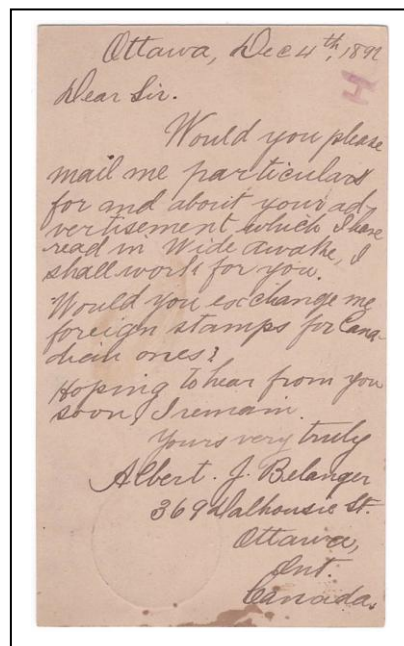 Ottawa, Dec 4th, 1891
Dear Sir.
Would you please
mail me particulars
for and about your ad-
vertisement which I have
read in Wide Awake, I
shall work for you.
Would you exchange my
foreign stamps for Cana-
dian ones?
Hoping to hear from you
soon, I remain.
Yours very truly
Albert. J. Belanger
369 Dalhousie St.
Ottawa,
Ont.
Canada.